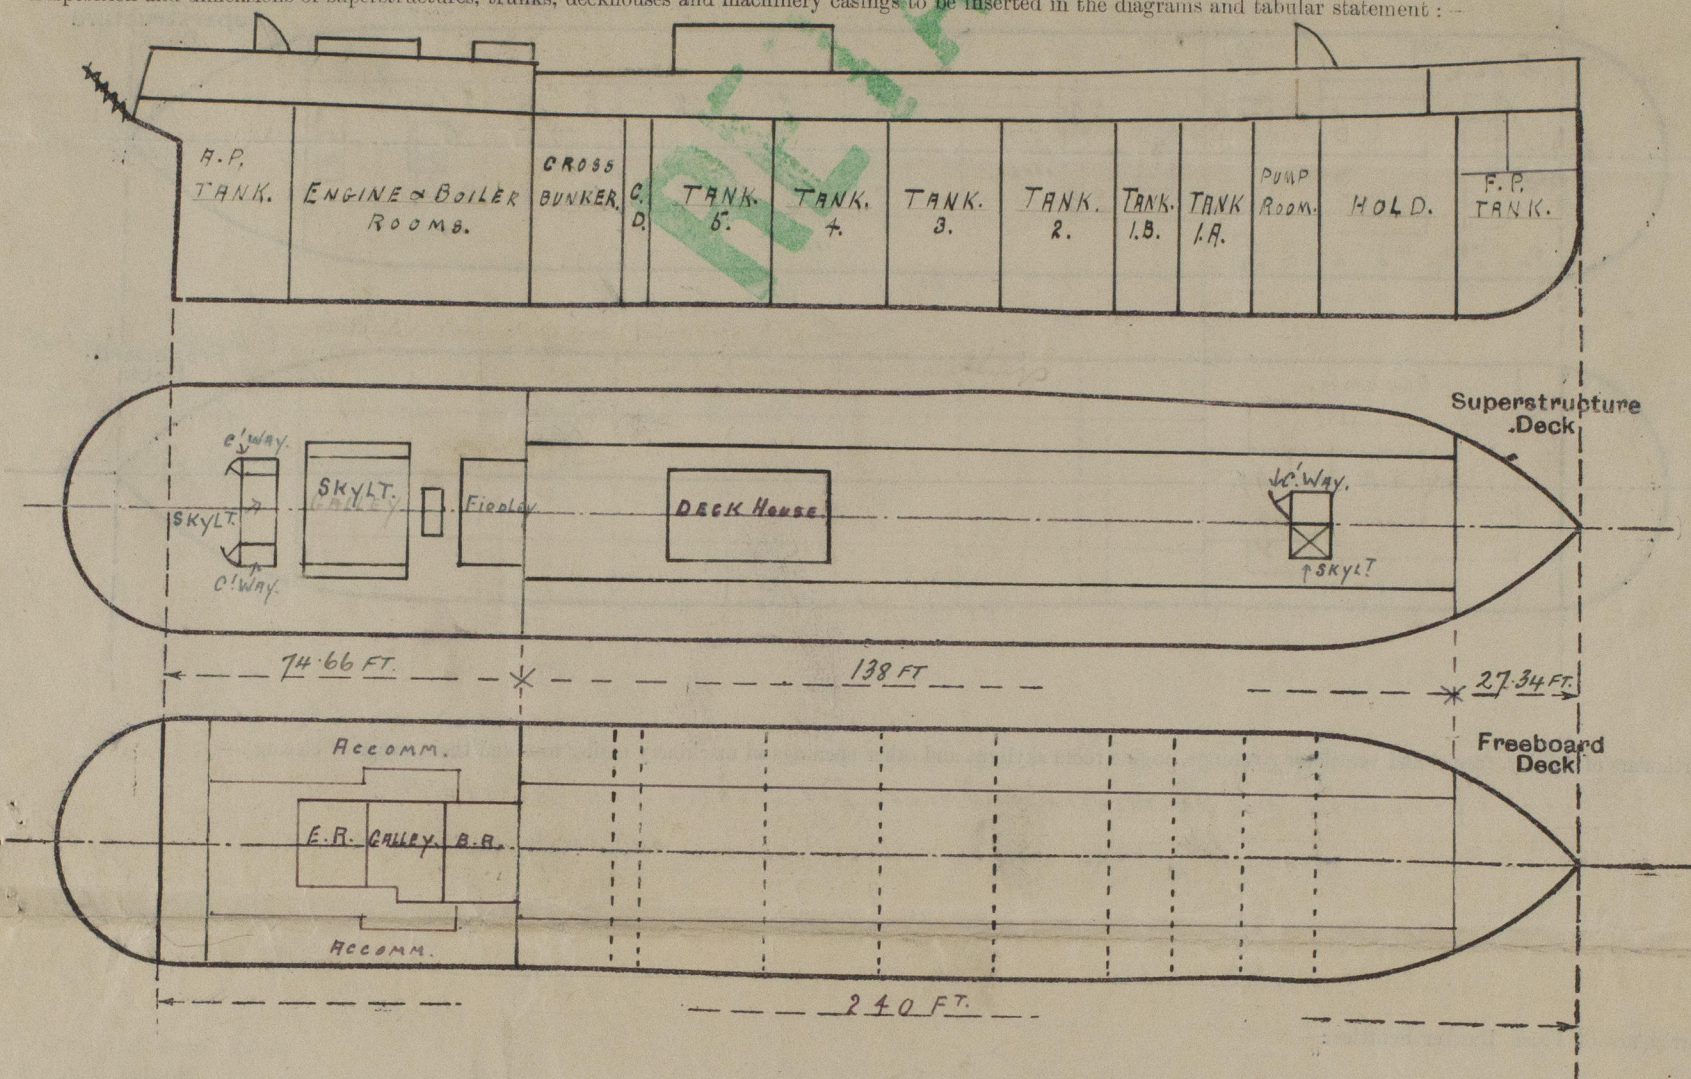 and dimensions of superstructures, trunks, deckhouses and machinery casings to be inserted in the diagrams and tabular statement :—
A.P. TANK.
ENGINE & BOILER ROOMS.
CROSS BUNKER.
C.D.
TANK. 5.
TANK. 4.
TANK. 3.
TANK. 2.
TANK. 1.B.
TANK 1.A.
PUMP ROOM.
HOLD.
F.P. TANK.
Superstructure
Deck
C'WAY.
SKYLT.
SKYLT.
GALLEY
C'WAY.
Fiddley
DECK HOUSE.
C'WAY.
SKYLT
74.66 FT.
138 FT
27.34 FT.
Freeboard
Deck
ACCOMM.
E.R.
GALLEY.
B.R.
ACCOMM.
240 FT.